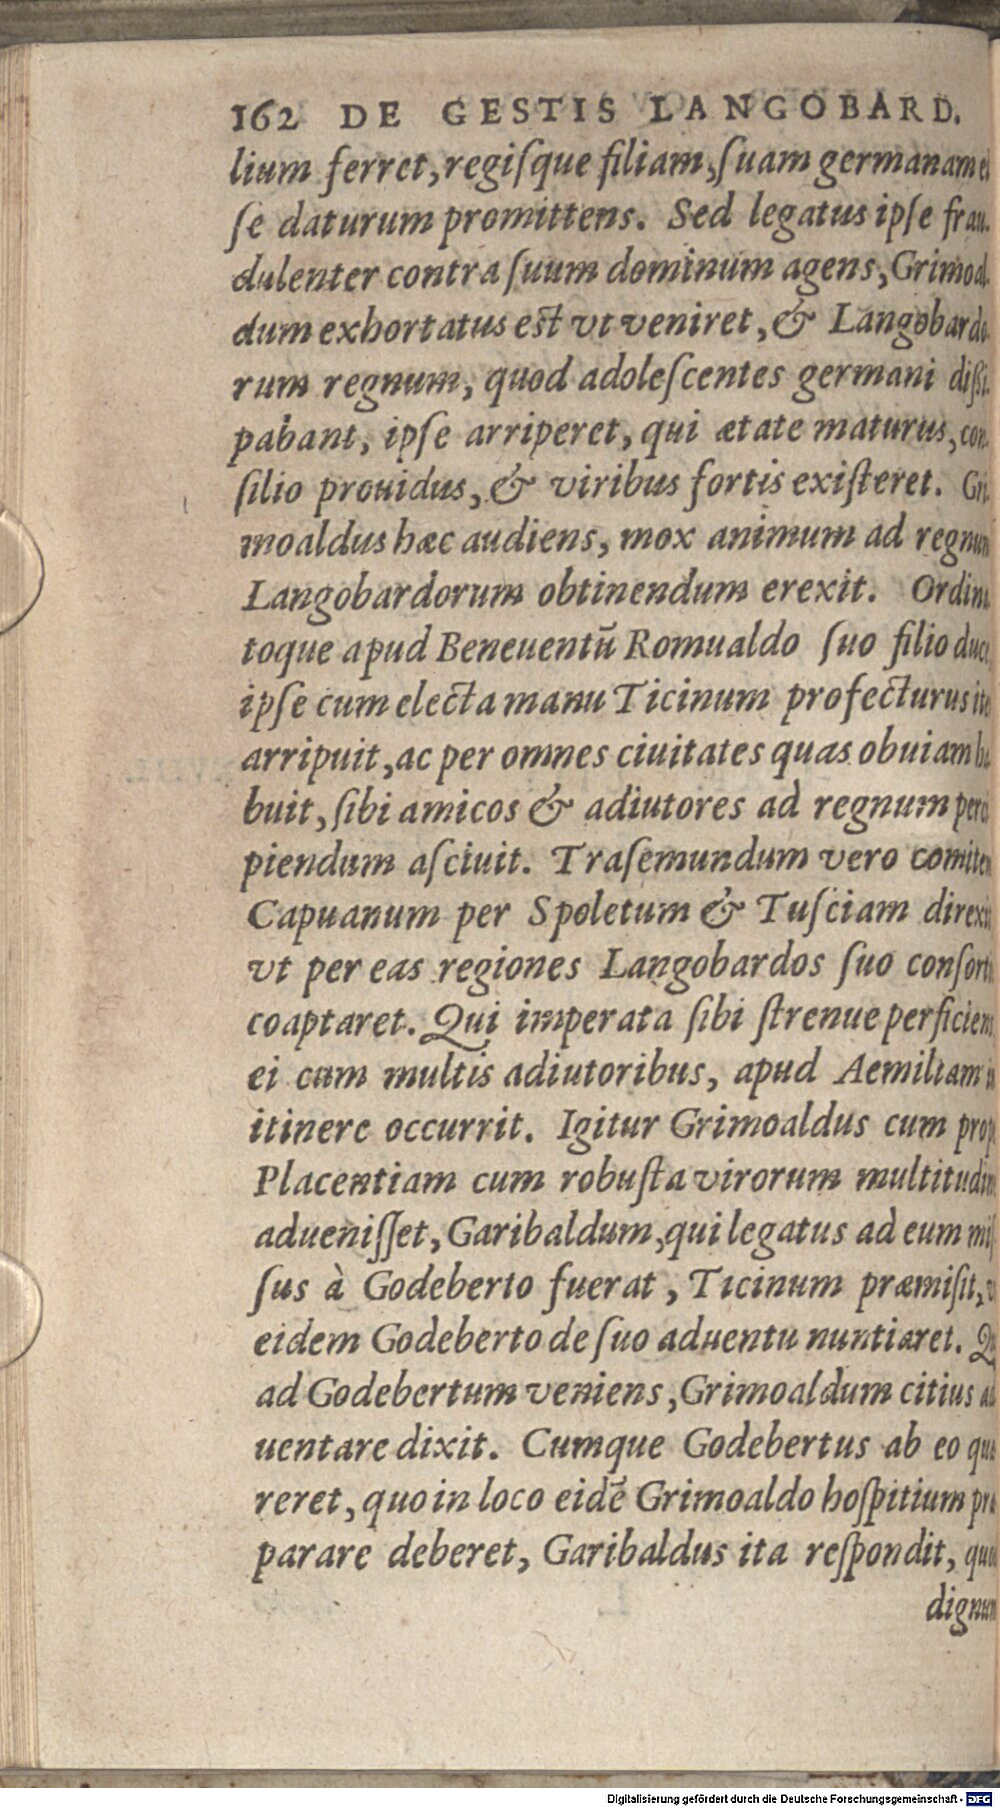 162 DE GESTIS LANGOBARD.
lium ferret, regiſque filiam, ſuam germanam ei
ſe daturum promittens. Sed legatus ipſe frau-
dulenter contra ſuum dominum agens, Grimoal-
dum exhortatus est vt veniret, & Langobardo-
rum regnum, quod adoleſcentes germani diſſi-
pabant, ipſe arriperet, qui ætate maturus, con-
ſilio prouidus, & viribus fortis exiſteret. Gri-
moaldus hæc audiens, mox animum ad regnum
Langobardorum obtinendum erexit. Ordina
toque apud Beneuentū Romualdo ſuo filio duce
ipſe cum electa manu Ticinum profecturus iter
arripuit, ac per omnes ciuitates quas obuiam ha
buit, ſibi amicos & adiutores ad regnum perci
piendum aſciuit. Traſemundum vero comitem
Capuanum per Spoletum & Tuſciam direxit
vt per eas regiones Langobardos ſuo conſortio
coaptaret. Qui imperata ſibi ſtrenue perficiens
ei cum multis adiutoribus, apud Aemiliam in
itinere occurrit. Igitur Grimoaldus cum prope
Placentiam cum robuſta virorum multitudine
adueniſſet, Garibaldum, qui legatus ad eum miſ
ſus à Godeberto fuerat, Ticinum præmiſit,
eidem Godeberto de ſuo aduentu nuntiaret. Qui
ad Godebertum veniens, Grimoaldum citius ad
uentare dixit. Cumque Godebertus ab eo quæ
reret, quo in loco eidē Grimoaldo hoſpitium præ
parare deberet, Garibaldus ita reſpondit, quod
dignum
Digitalisierung gefördert durch die Deutsche Forschungsgemeinschaft - DFG